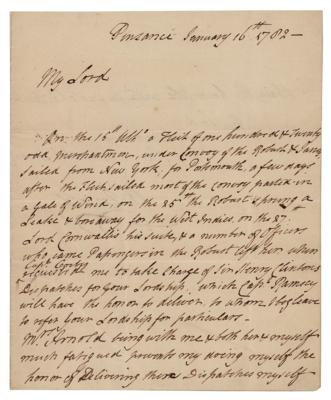 Penzance January 16th 1782 –
My Lord
On the 15th Ulto a Fleet of one hundred & Twenty
odd Merchantmen, under Convoy of the Robust & Janus
Sailed from New York, for Portsmouth, a few days
after the Fleet sailed most of the convoy parted in
a Gale of Wind, on the 25th the Robust sprung a
Leake & bore away for the West Indies, on the 27th
Lord Cornwallis his suite, & a number of Officers
who came Pasengers in the Robust left her, when
Capt Cosby
requested me to take Charge of Sir Henry Clintons
Dispatches for Your Lordship, which Capt Ramsey
will have the honor to deliver, to whom I beg leave
to refer Your Lordship for particulars –
Mrs Arnold being with me & both her & myself
much fatigued prevents my doing myself the
honor of Delivering these Dispatches myself